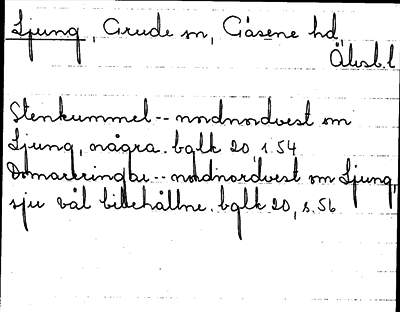 Ljung, Grude sn, Gäsene hd,
Älvsb.l
Stenkummel -- nordnordvest om
Ljung, några. bglk 20 s.54
Domarringar -- nordnordvest om Ljung,
sju väl bibehållne. bglk 20, s.56